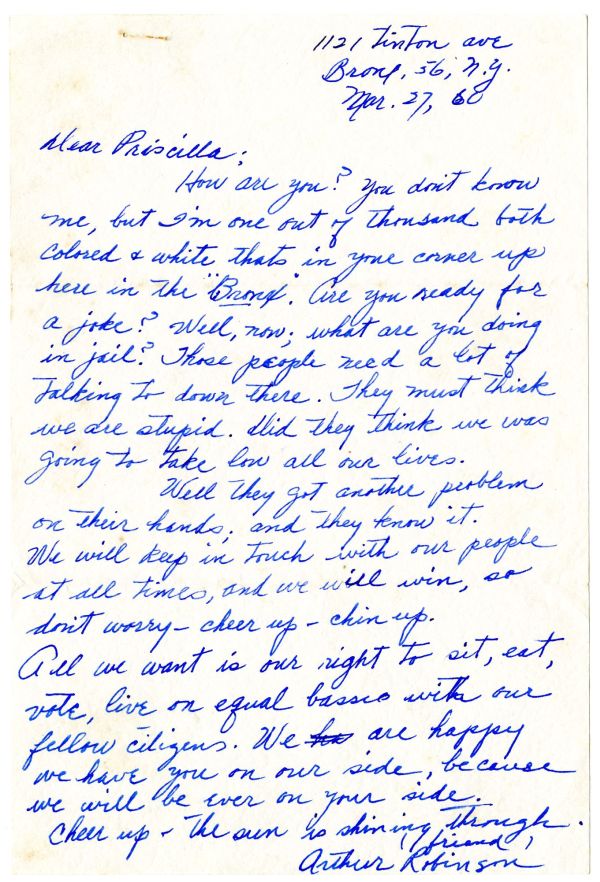 1121 Tinton ave
Bronx, 56, N.Y.
Mar. 27, 60
Dear Priscilla;
How are you? You don't know
me, but I'm one out of thousand both
colored & white thats in your corner up
here in the "Bronx". Are you ready for
a joke? Well, now; what are you doing
in jail? Those people need a lot of
talking to down there. They must think
we are stupid. Did they think we was
going to take low all our lives.
Well they got another problem
on their hands; and they know it.
We will keep in touch with our people
at all times, and we will win, so
don't worry - cheer up - chin up.
All we want is our right to sit, eat,
vote, live on equal bassic with our
fellow citizens. We ha are happy
we have you on our side, because
we will be ever on your side.
Cheer up - the sun is shining through.
(friend)
Arthur Robinson